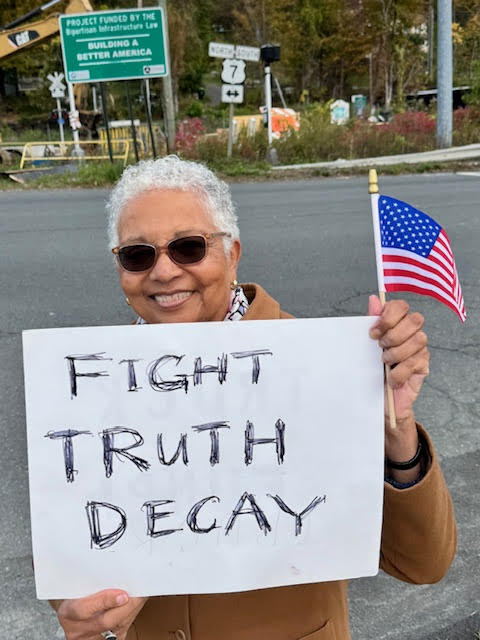 PROJECT FUNDED BY THE
Bipartisan Infrastructure Law
BUILDING A
BETTER AMERICA
CAT
NORTH SOUTH
7
FIGHT
TRUTH
DECAY